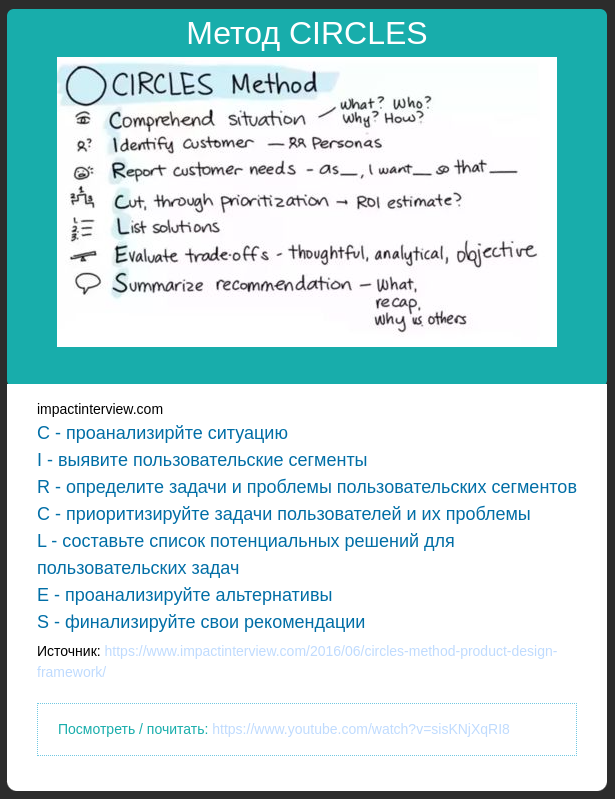 Метод CIRCLES
CIRCLES Method
Comprehend situation
What? Who?
Why? How?
Identify customer — Personas
Report customer needs - as__, I want__ so that__
1 2 3
Cut, through prioritization → ROI estimate?
1. 2. 3.
List solutions
Evaluate trade-offs - thoughtful, analytical, objective
Summarize recommendation — What,
recap,
why vs. others
impactinterview.com
C - проанализирйте ситуацию
I - выявите пользовательские сегменты
R - определите задачи и проблемы пользовательских сегментов
C - приоритизируйте задачи пользователей и их проблемы
L - составьте список потенциальных решений для
пользовательских задач
E - проанализируйте альтернативы
S - финализируйте свои рекомендации
Источник: https://www.impactinterview.com/2016/06/circles-method-product-design-
framework/
Посмотреть / почитать: https://www.youtube.com/watch?v=sisKNjXqRI8